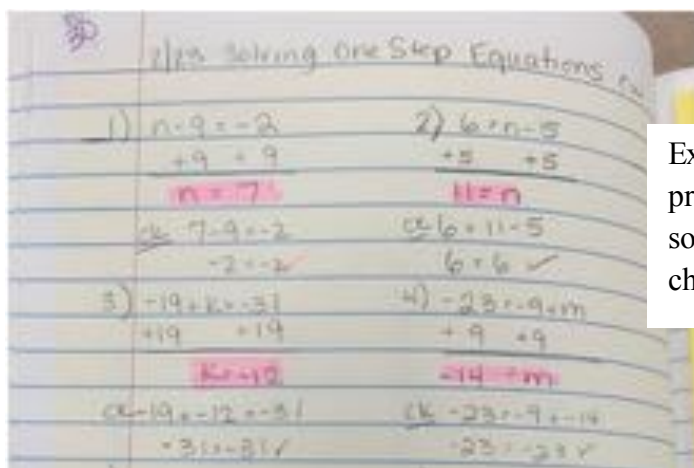 2/23 Solving One Step Equations
1) n - 9 = -2
+9 +9
n = 7
ck 7 - 9 = -2
-2 = -2 ✓
2) 6 = n - 5
+5 +5
11 = n
ck 6 = 11 - 5
6 = 6 ✓
3) -19 + k = -31
+19 +19
k = -12
ck -19 + -12 = -31
-31 = -31 ✓
4) -23 = -9 + m
+9 +9
-14 = m
ck -23 = -9 + -14
-23 = -23 ✓
Ex
pr
so
ch